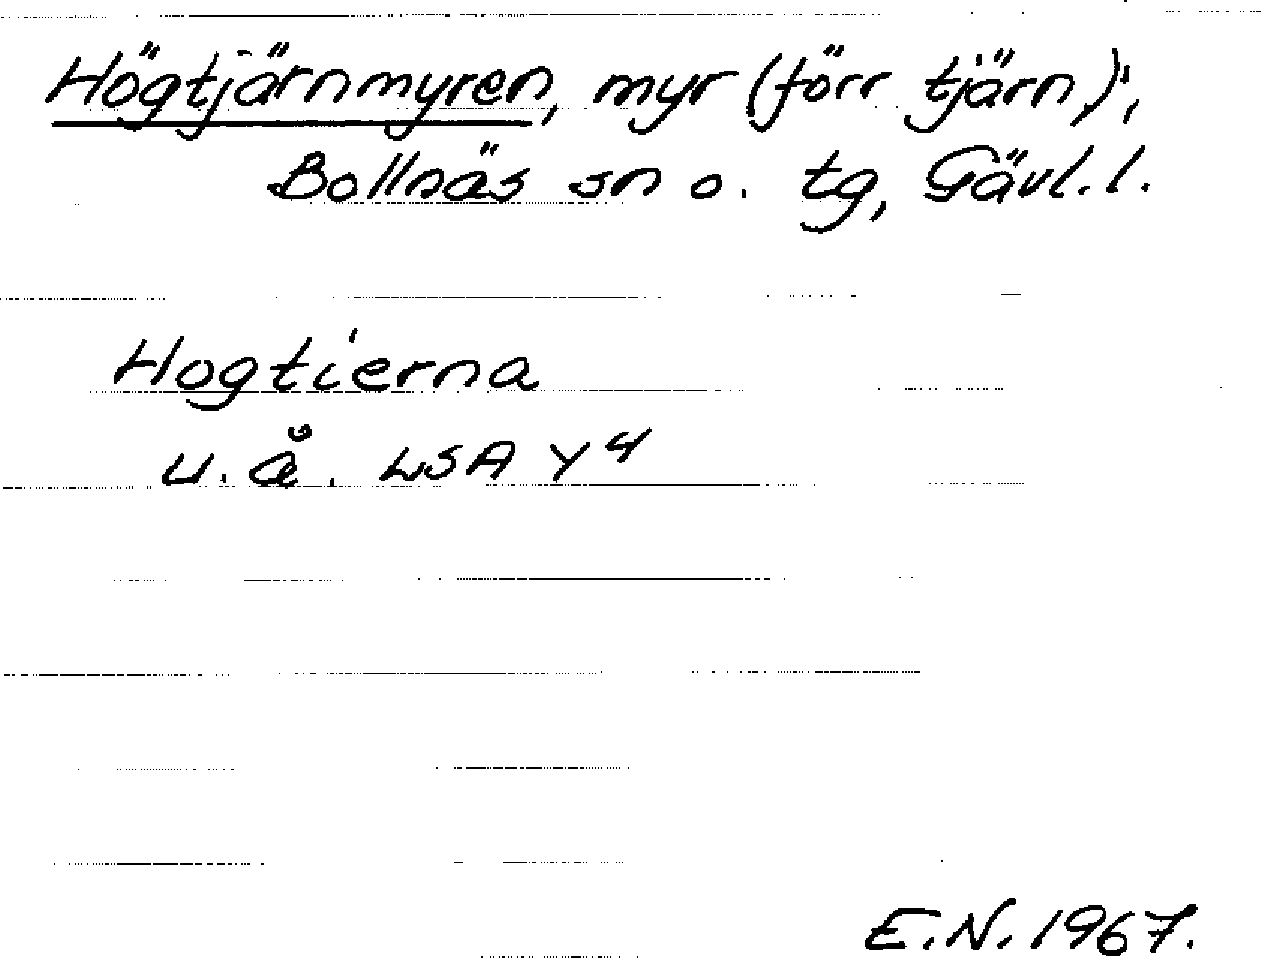 Högtjärnmyren, myr (förr tjärn),
Bollnäs sn o. tg, Gävl.l.
Hogtierna
u.å. LSA Y4
E.N. 1967.